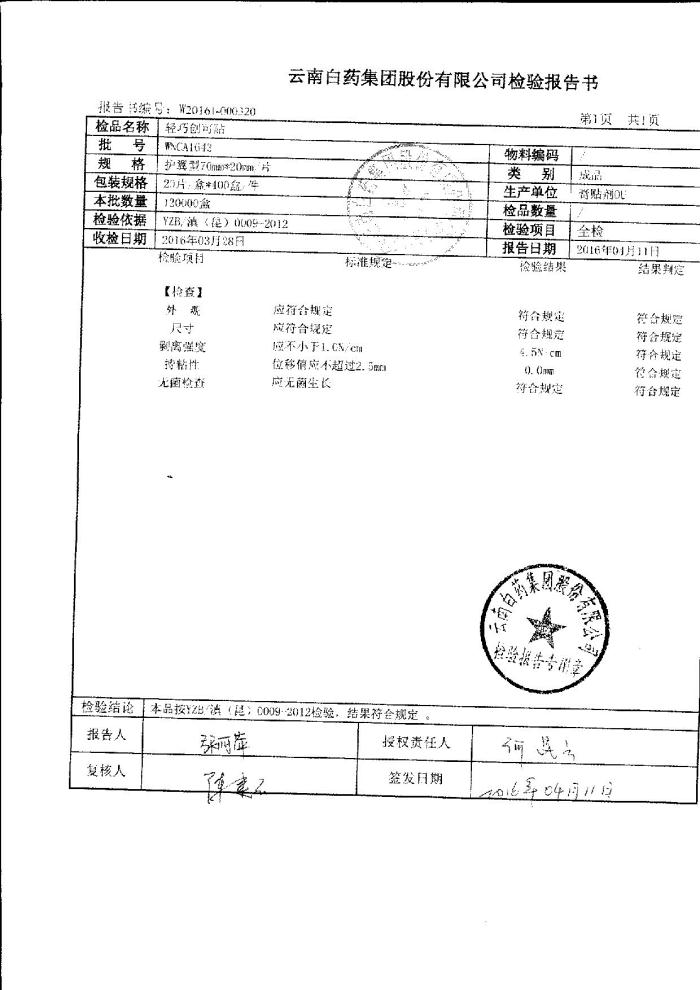 云南白药集团股份有限公司检验报告书
报告书编号：W20161-000320 第1页 共1页
检品名称 轻巧创可贴
批 号 WNCA1643 物料编码 /
规 格 护翼型70mm*20mm/片 类 别 成品
包装规格 20片/盒*400盒/件 生产单位
本批数量 120000盒 检品数量 /
检验依据 YZB/滇（昆）0009-2012 检验项目 全检
收检日期 2016年03月28日 报告日期 2016年04月11日
检验项目 标准规定 检验结果 结果判定
【检查】
外 观 应符合规定 符合规定 符合规定
尺寸 应符合规定 符合规定 符合规定
剥离强度 应不小于1.0N/cm 4.5N/cm 符合规定
持粘性 位移值应不超过2.5mm 0.0mm 符合规定
无菌检查 应无菌生长 符合规定 符合规定
云南白药集团股份有限公司
检验报告专用章
检验结论 本品按YZB/滇（昆）0009-2012检验，结果符合规定 。
报告人 授权责任人
复核人 签发日期 2016年04月11日